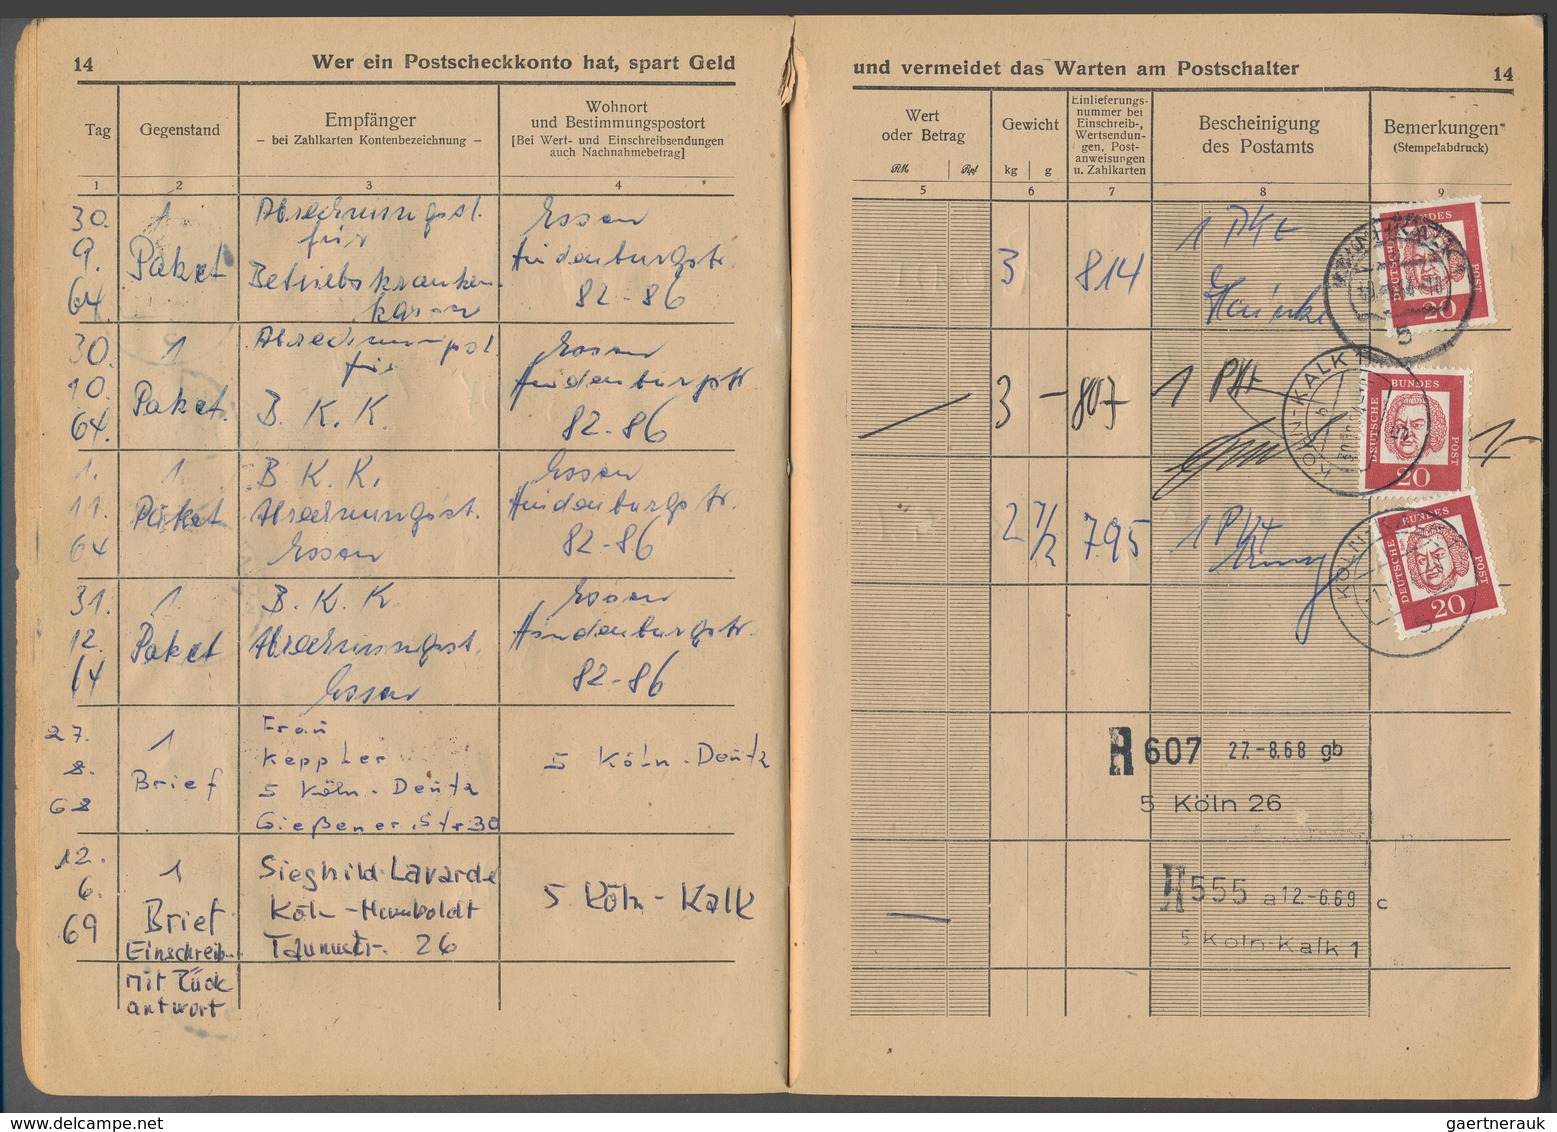 14 Wer ein Postscheckkonto hat, spart Geld
Tag
Gegenstand
Empfänger
– bei Zahlkarten Kontenbezeichnung –
Wohnort
und Bestimmungspostort
[Bei Wert- und Einschreibsendungen
auch Nachnahmebetrag]
1 2 3 4
30.
9.
64
1
Paket
Abrechnungsst.
für
Betriebskranken
kassen
Essen
Hindenburgstr.
82-86
30.
10.
64.
1
Paket.
Abrechnungsst
für
B. K. K.
Essen
Hindenburgstr
82-86
1.
11.
64
1
Paket
B K K.
Abrechnungsst.
Essen
Essen
Hindenburgstr.
82-86
31.
12.
64
1
Paket
B. K. K
Abrechnungsst.
Essen
Essen
Hindenburgstr.
82-86
27.
8.
68
1
Brief
Frau
Keppler
5 Köln-Deutz
Gießener Str 30
5 Köln-Deutz
12.
6.
69
1
Brief
Einschreib.
mit Rück
antwort
Sieghild Lavarde
Köln-Humboldt
Taunusstr. 26
5 Köln-Kalk
und vermeidet das Warten am Postschalter 14
Wert
oder Betrag
RM Rpf
Gewicht
kg g
Einlieferungs-
nummer bei
Einschreib-,
Wertsendun-
gen, Post-
anweisungen
u. Zahlkarten
Bescheinigung
des Postamts
Bemerkungen
(Stempelabdruck)
5 6 7 8 9
3 814 1 Pkt
DEUTSCHE BUNDES POST
20
KÖLN-KALK 1
5
3 — 807 1 Pkt
DEUTSCHE BUNDES POST
20
KÖLN-KALK 1
5
2 1/2 795 1 Pkt
DEUTSCHE BUNDES POST
20
KÖLN
5
R 607 27.-8.68 gb
5 Köln 26
R 555 a 12.-6.69 c
5 Köln-Kalk 1
gaertnerauk